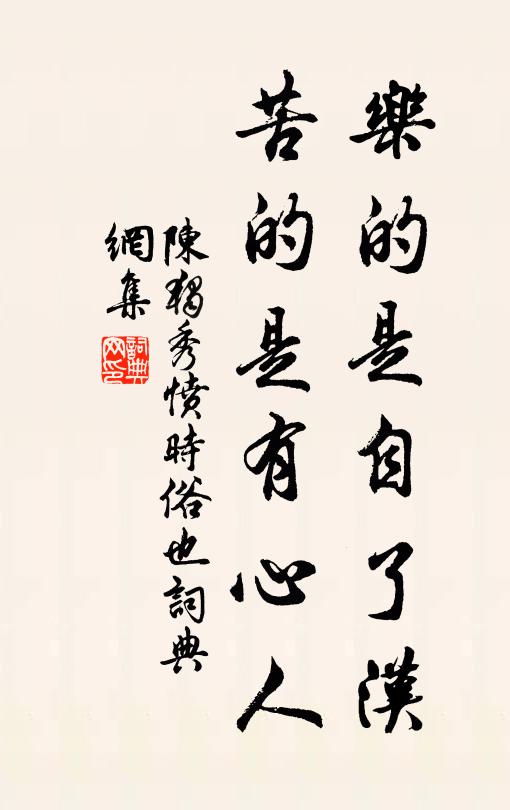 樂的是自了漢
苦的是有心人
陳獨秀憤時俗也詞典
網集
詞典
网印